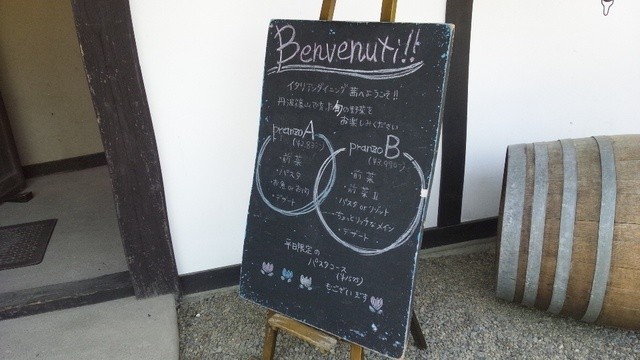 Benvenuti!!
イタリアンダイニング茜へようこそ!!
丹波篠山で育った旬の野菜を
お楽しみください
pranzo A
・前菜
・パスタ
・お魚 or お肉
・デザート
pranzo B
・前菜
・前菜Ⅱ
・パスタ or リゾット
・ちょっとリッチなメイン
・デザート
平日限定の
パスタコース
もございます